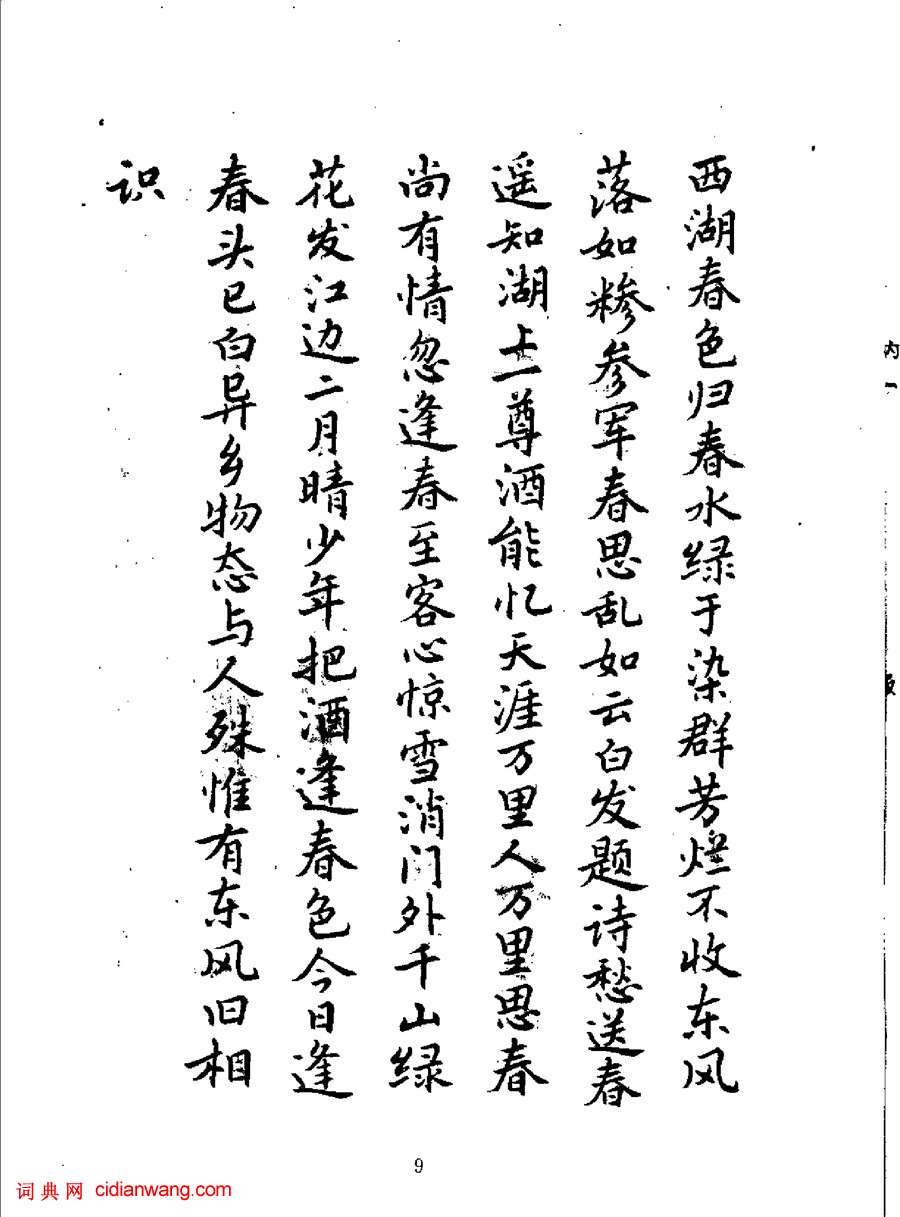 西湖春色归春水绿于染群芳烂不收东风
落如糁参军春思乱如云白发题诗愁送春
遥知湖上一尊酒能忆天涯万里人万里思春
尚有情忽逢春至客心惊雪消门外千山绿
花发江边二月晴少年把酒逢春色今日逢
春头已白异乡物态与人殊惟有东风旧相
识
9
词典网 cidianwang.com